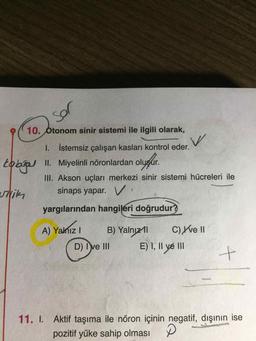 10. Otonom sinir sistemi ile ilgili olarak,
I. İstemsiz çalışan kasları kontrol eder.
II. Miyelinli nöronlardan oluşur.
III. Akson uçları merkezi sinir sistemi hücreleri ile
sinaps yapar.
yargılarından hangileri doğrudur?
A) Yalnız I B) Yalnız II C) I ve II
D) I ve III E) I, II ve III
11. I. Aktif taşıma ile nöron içinin negatif, dışının ise
pozitif yüke sahip olması